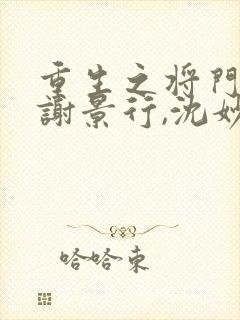 重生之将門
謝景行,沈妙
哈哈東